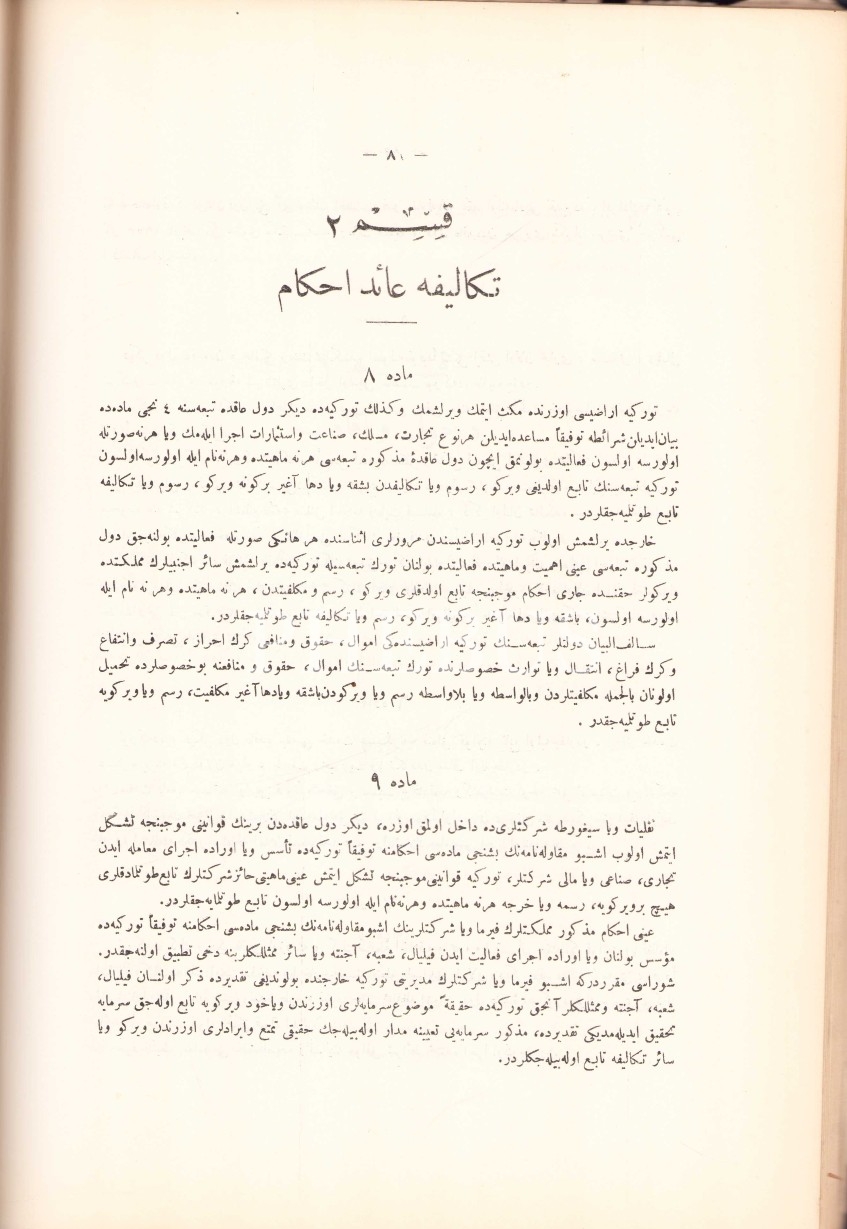 — ٨٠ —
قسم ٢
تكاليفه عائد احكام
ماده ٨
توركيه اراضيسى اوزرنده مكث ايتمك ويرلشمك وكذلك توركيه‌ده ديكر دول عاقده تبعه‌سنه ٤ نجى ماده‌ده
بيان‌ايديلن‌شرائطه توفيقاً مساعده‌ايديلن هرنوع تجارت، مسلك، صناعت واستثمارات اجرا ايله‌مك ويا هرنه‌صورتله
اولورسه اولسون فعاليتده بولونمق ايچون دول عاقدهٔ مذكوره تبعه‌سى هرنه ماهيتده وهرنه‌نام ايله اولورسه‌اولسون
توركيه تبعه‌سنك تابع اولديغى ويركو، رسوم ويا تكاليفدن بشقه ويا دها آغير بركونه ويركو، رسوم ويا تكاليفه
تابع طوتلميه‌جقلردر .
خارجده يرلشمش اولوب توركيه اراضيسندن مرورلرى اثناسنده هر هانكى صورتله فعاليتده بولنه‌جق دول
مذكوره تبعه‌سى عينى اهميت وماهيتده فعاليتده بولنان تورك تبعه‌سيله توركيه‌ده يرلشمش سائر اجنبيلرك مملكتده
ويركولر حقنده جارى احكام موجبنجه تابع اولدقلرى ويركو، رسم و مكلفيتدن، هرنه ماهيتده وهر نه نام ايله
اولورسه اولسون، باشقه ويا دها آغير بركونه ويركو، رسم ويا تكاليفه تابع طوتلميه‌جقلردر.
سالف‌البيان دولتلر تبعه‌سنك توركيه اراضيسنده‌كى اموال، حقوق ومنافعى كرك احراز، تصرف وانتفاع
وكرك فراغ، انتقال ويا توارث خصوصلرنده تورك تبعه‌سنك اموال، حقوق و منافعنه بوخصوصلرده تحميل
اولونان بالجمله مكلفيتلردن وبالواسطه ويا بلاواسطه رسم ويا ويركودن‌باشقه ويادهاآغير مكلفيت، رسم وياويركويه
تابع طوتلميه‌جقدر .
ماده ٩
نقليات ويا سيغورطه شركتلرى‌ده داخل اولمق اوزره، ديكر دول عاقده‌دن برينك قوانينى موجبنجه تشكل
ايتمش اولوب اشبو مقاوله‌نامه‌نك بشنجى ماده‌سى احكامنه توفيقاً توركيه‌ده تأسس ويا اوراده اجراى معامله ايدن
تجارى، صناعى ويا مالى شركتلر، توركيه قوانينى‌موجبنجه تشكل ايتمش عينى‌ماهيتى‌حائزشركتلرك تابع‌طوتلمادقلرى
هيچ برويركويه، رسمه ويا خرجه هرنه ماهيتده وهرنه‌نام ايله اولورسه اولسون تابع طوتلمايه‌جقلردر.
عينى احكام مذكور مملكتلرك فيرما ويا شركتلرينك اشبومقاوله‌نامه‌نك بشنجى ماده‌سى احكامنه توفيقاً توركيه‌ده
مؤسس بولنان ويا اوراده اجراى فعاليت ايدن فيليال، شعبه، آجنته ويا سائر ممثللكلرينه دخى تطبيق اولنه‌جقدر.
شوراسى مقرردركه اشبو فيرما ويا شركتلرك مديريتى توركيه خارجنده بولونديغى تقديرده ذكر اولنان فيليال،
شعبه، آجنته وممثللكلر آنجق توركيه‌ده حقيقةً موضوع‌سرمايه‌لرى اوزرندن وياخود ويركويه تابع اوله‌جق سرمايه
تحقيق ايديله‌مديكى تقديرده، مذكور سرمايه‌يى تعيينه مدار اوله‌بيله‌جك حقيقى تمتع وايرادلرى اوزرندن ويركو ويا
سائر تكاليفه تابع اوله‌بيله‌جكلردر.